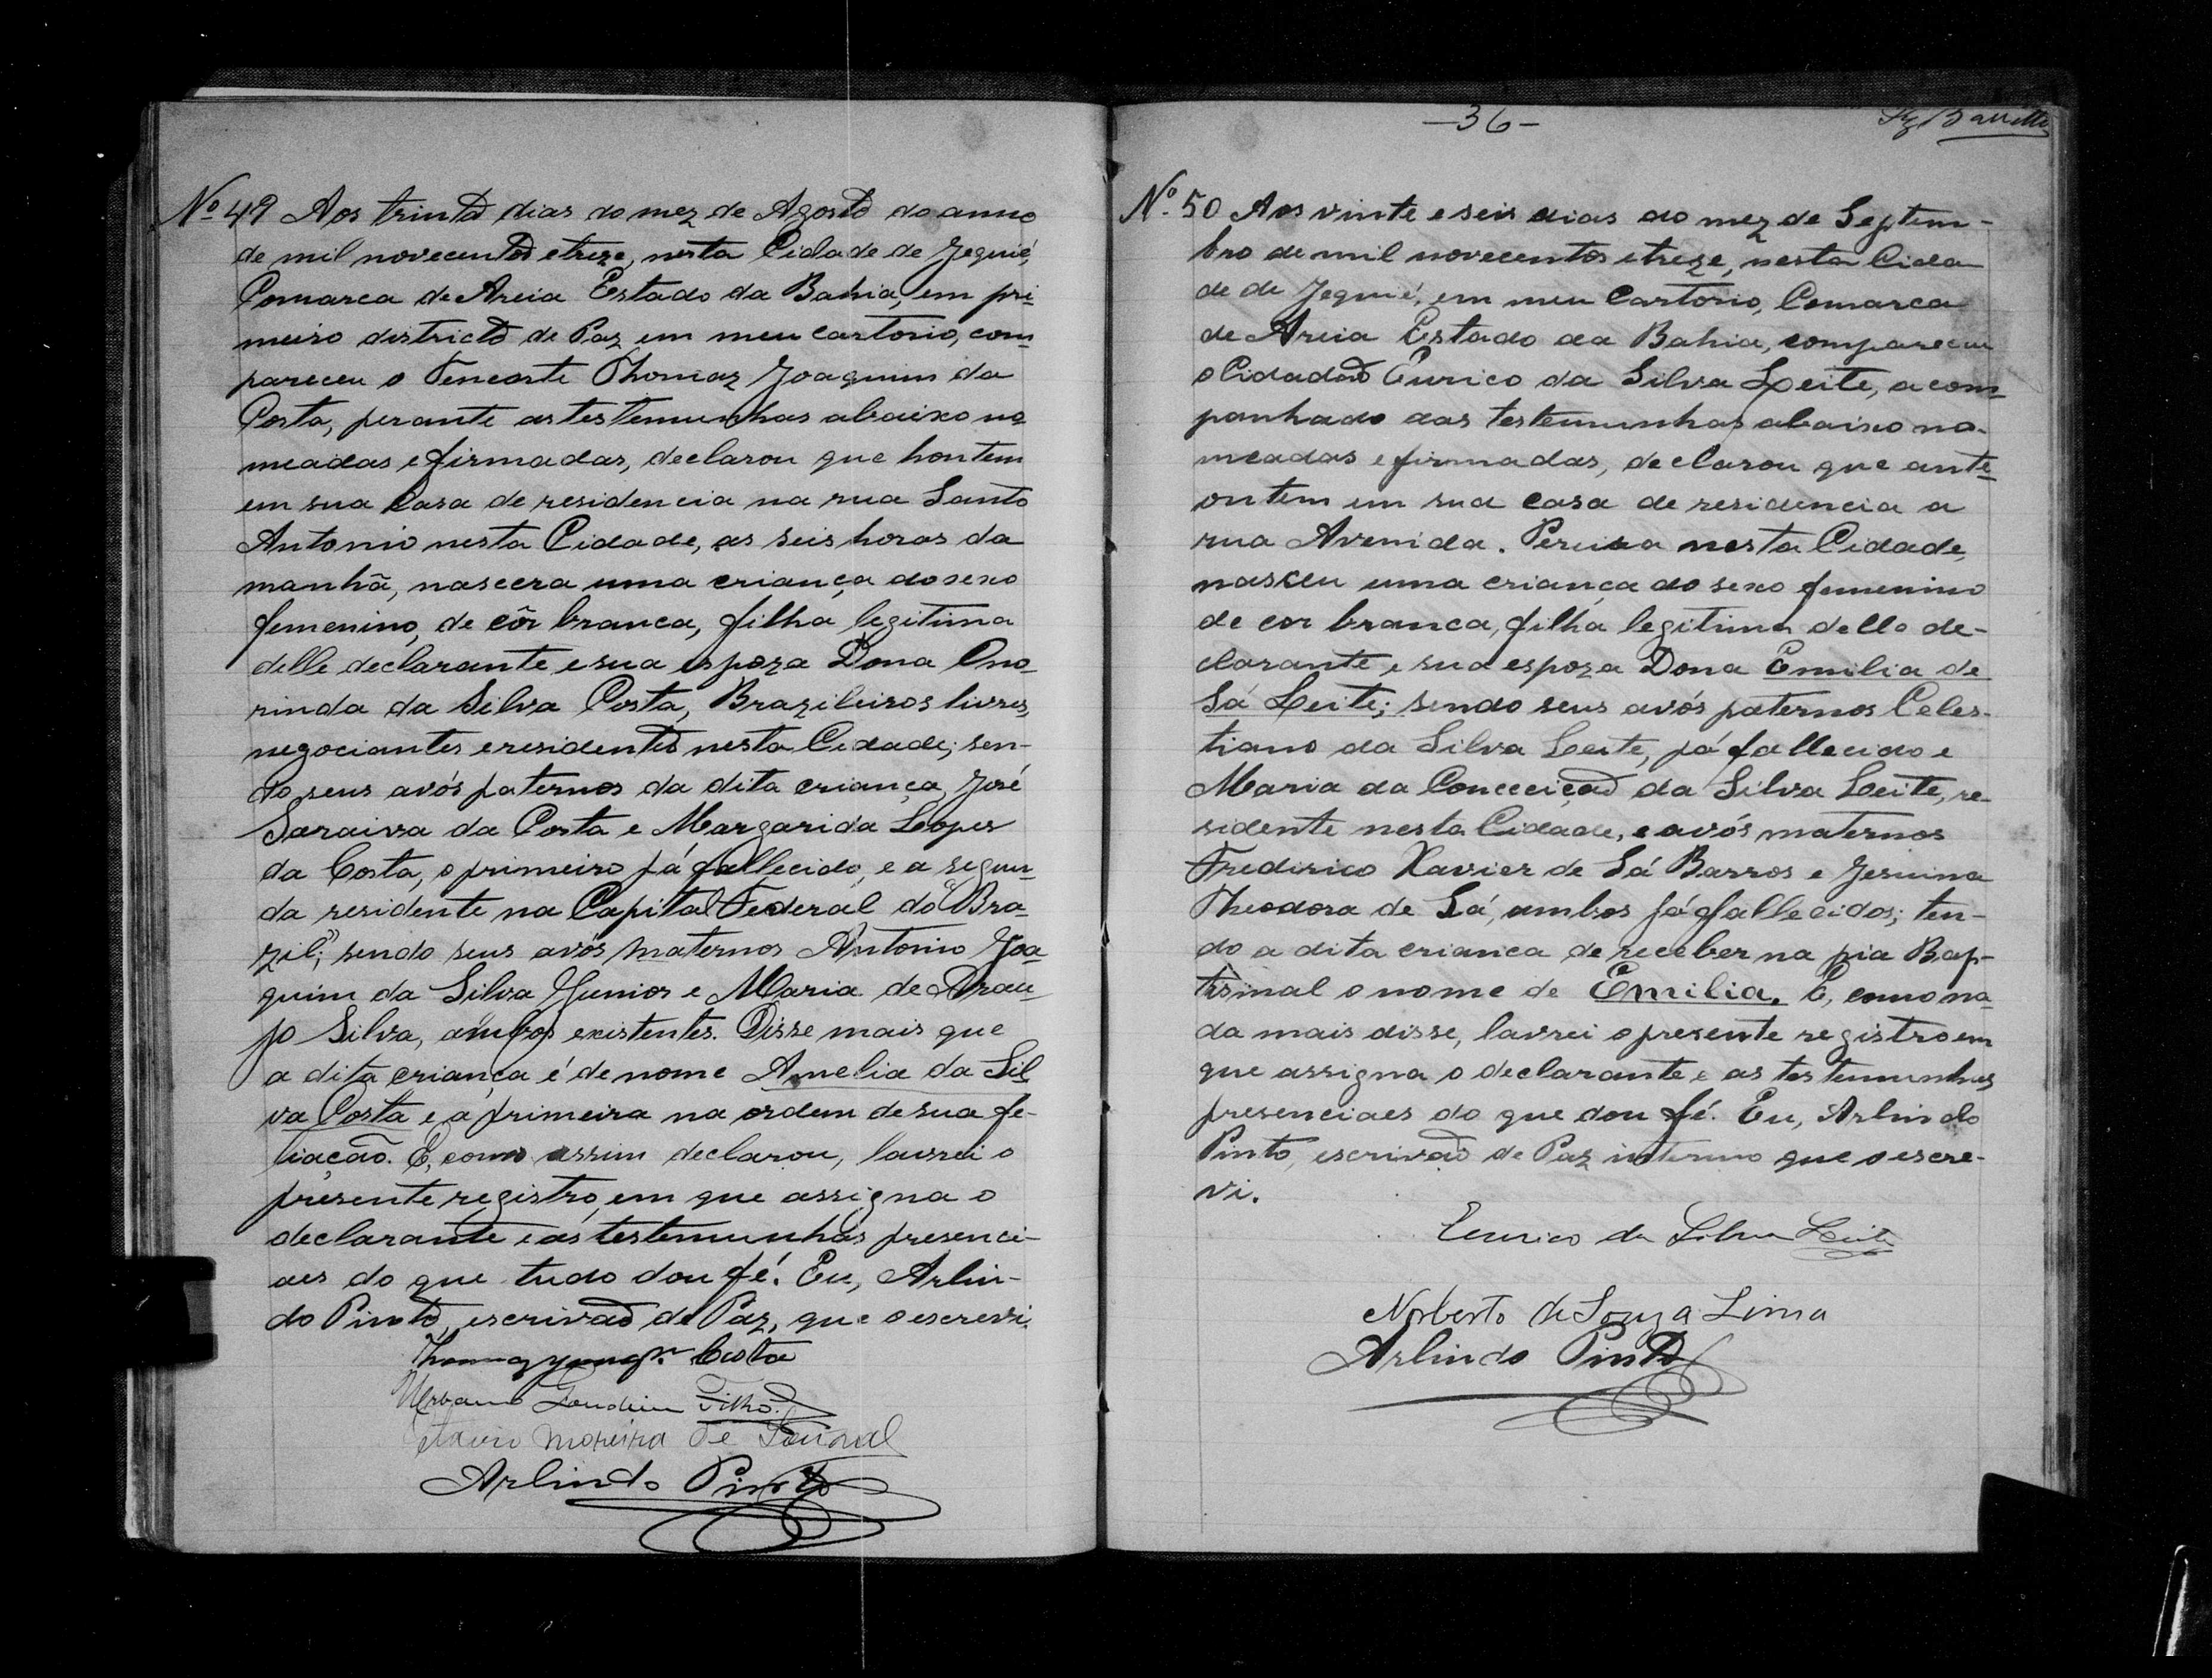 Nº 49 Aos trinta dias do mez de Agosto do anno
de mil novecentos e treze, nesta Cidade de Jequié,
Comarca de Areia Estado da Bahia, em pri-
meiro districto de Paz em meu cartorio, com-
pareceu o Tenente Thomaz Joaquim da
Costa, perante as testemunhas abaixo no-
meadas e firmadas, declarou que hontem
em sua Casa de residencia na rua Santo
Antonio nesta Cidade, as seis horas da
manhã, nascera uma criança do sexo
femenino, de côr branca, filha legitima
delle declarante e sua espoza Dona Ono-
rinda da Silva Costa, Brazileiros livres,
negociantes e residentes nesta Cidade; sen-
do seus avós paternos da dita criança, José
Saraiva da Costa e Margarida Lopes
da Costa, o primeiro já fallecido, e a segun-
da residente na Capital Federal do "Bra-
zil"; sendo seus avós maternos Antonio Joa-
quim da Silva Junior e Maria de Arau-
jo Silva, ambos existentes. Disse mais que
a dita criança é de nome Amelia da Sil-
va Costa e a primeira na ordem de sua fe-
liação. E, como assim declarou, lavrei o
presente registro, em que assigna o
declarante e as testemunhas presenci-
aes do que tudo dou fé. Eu, Arlin-
do Pinto, escrivão de Paz, que o escrevi.
Costa
Urbano Gondim Filho
Moreira de
Arlindo Pinto
-36-
Nº 50 Aos vinte e seis dias do mez de Septem-
bro de mil novecentos e treze, nesta Cida-
de de Jequié, em meu Cartorio, Comarca
de Areia Estado da Bahia, compareceu
o Cidadão Eurico da Silva Leite, acom-
panhado das testemunhas abaixo no-
meadas e firmadas, declarou que ante-
ontem em sua casa de residencia a
rua Avenida. Pereira nesta Cidade,
nasceu uma criança do sexo femenino
de cor branca, filha legitima dello de-
clarante e sua espoza Dona Emilia de
Sá Leite; sendo seus avós paternos Celes-
tiano da Silva Leite, já fallecido e
Maria da Conceeição da Silva Leite, re-
sidente nesta Cidade, e avós maternos
Frederico Xavier de Sá Barros e Jesuina
Theodora de Sá, ambos já fallecidos; ten-
do a dita crianca de receber na pia Bap-
tismal o nome de Emilia. E, como na-
da mais disse, lavrei o presente registro em
que assigna o declarante e as testemunhas
presenciaes do que dou fé. Eu, Arlindo
Pinto, escrivão de Paz interino que o escre-
vi.
Eurico da Silva Leite
Norberto de Souza Lima
Arlindo Pinto